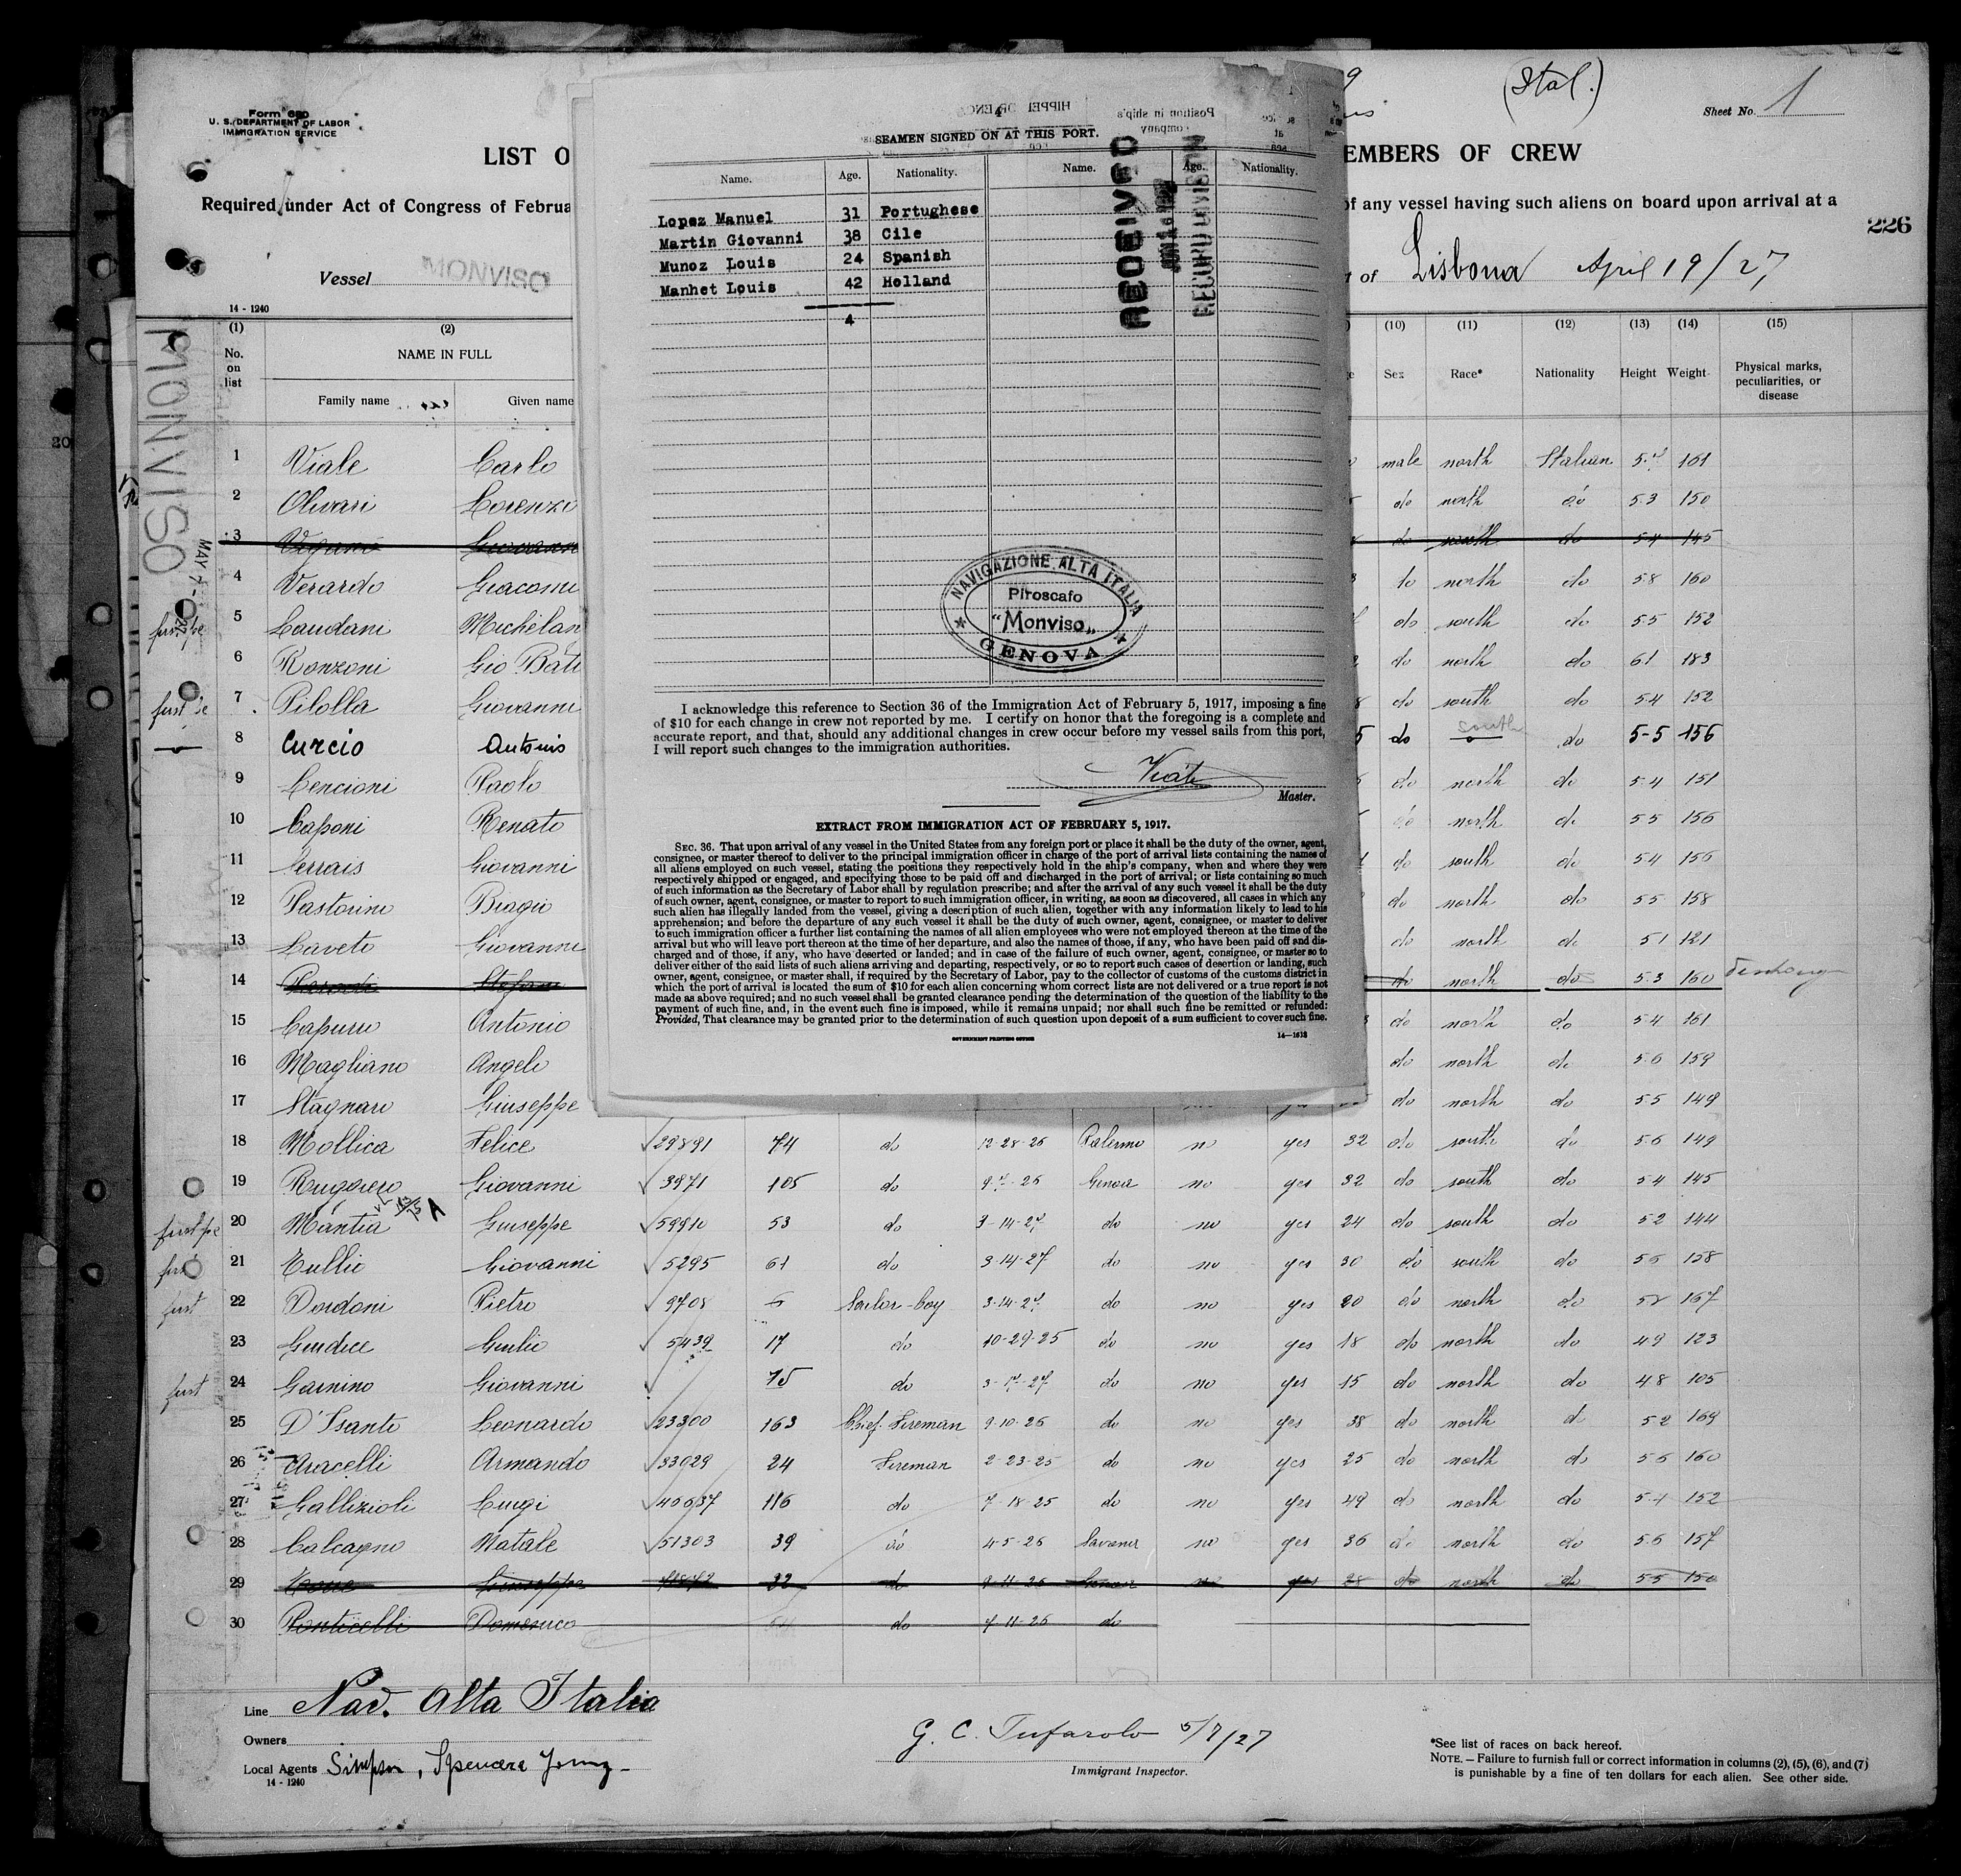 (Ital.)
Form 680
U. S. DEPARTMENT OF LABOR
IMMIGRATION SERVICE
Sheet No. 1
LIST O
EMBERS OF CREW
Required under Act of Congress of Februa
of any vessel having such aliens on board upon arrival at a
226
Vessel MONVISO
t of Lisbona April 19/27
14 - 1240
MONVISO
MAY 7-
(1) (2) (10) (11) (12) (13) (14) (15)
No. on list NAME IN FULL Sex Race* Nationality Height Weight Physical marks, peculiarities, or disease
Family name Given name
1 Viale Carlo male north Italian 161
2 Olivari Lorenzo do north do 5.3 150
3 do north do 5.4 145
4 Verardo Giacomi do north do 5.8 160
5 Caudani Michelan do south do 5.5 152
6 Ronzoni Gio Batt do north do 6.1 183
7 Pilolla Giovanni do south do 5.4 152
8 Curcio Antonio do south do 5-5 156
9 Cencioni Paolo do north do 5.4 151
10 Caponi Renato do north do 5.5 156
11 Serrais Giovanni do south do 5.4 156
12 Pastorino Biagio do north do 5.5 158
13 Caveto Giovanni do north do 5.1 121
14 Stefano do north do 5.3 160
15 Capurro Antonio do north do 5.4 161
16 Magliano Angelo do north do 5.6 159
17 Stagnaro Giuseppe do north do 5.5 149
18 Mollica Felice 29891 74 do 12-28-26 Palermo no yes 32 do south do 5.6 149
19 Ruggiero Giovanni 3971 105 do Genoa no yes 32 do south do 5.4 145
20 Mantia Giuseppe 59910 53 do 3-14-27 do no yes 24 do south do 5.2 144
21 Tullio Giovanni 5295 61 do 3-14-27 do no yes 30 do south do 5.6 158
22 Dordoni Pietro 9708 6 Sailor-boy 3-14-27 do no yes 20 do north do 167
23 Giudice Giulio 5439 17 do 10-29-25 do no yes 18 do north do 4.9 123
24 Gainino Giovanni 15 do 27 do no yes 15 do north do 4.8 105
25 D'Isanto Leonardo 23300 163 Chief Fireman 9-10-26 do no yes 38 do north d 5.2 169
26 Aracelli Armando 33029 24 Fireman 2-23-25 do no yes 25 do north do 5.6 160
27 Gallizioli Luigi 40637 116 do 7-18-25 do no yes 49 do north do 5.4 152
28 Calcagno Natale 51303 39 do 4-5-26 Savona no yes 36 do north do 5.6 157
29 Giuseppe 32 do 9-11-26 Genoa no yes 28 do north do 5.5 150
30 Ponticelli Domenico do 7-11-26 do
Line Nav. Alta Italia
Owners
Local Agents Simpson, Spence Young
14 - 1240
G. C. Tufarolo 5/7/27
Immigrant Inspector.
*See list of races on back hereof.
NOTE. – Failure to furnish full or correct information in columns (2), (5), (6), and (7)
is punishable by a fine of ten dollars for each alien. See other side.
4
SEAMEN SIGNED ON AT THIS PORT.
Name. Age. Nationality. Name. Age. Nationality.
Lopez Manuel 31 Portughese
Martin Giovanni 38 Cile
Munoz Louis 24 Spanish
Manhet Louis 42 Holland
4
RECEIVED
RECORD DIVISION
NAVIGAZIONE ALTA ITALIA
Piroscafo
"Monviso"
GENOVA
I acknowledge this reference to Section 36 of the Immigration Act of February 5, 1917, imposing a fine
of $10 for each change in crew not reported by me. I certify on honor that the foregoing is a complete and
accurate report, and that, should any additional changes in crew occur before my vessel sails from this port,
I will report such changes to the immigration authorities.
Viale
Master.
EXTRACT FROM IMMIGRATION ACT OF FEBRUARY 5, 1917.
SEC. 36. That upon arrival of any vessel in the United States from any foreign port or place it shall be the duty of the owner, agent,
consignee, or master thereof to deliver to the principal immigration officer in charge of the port of arrival lists containing the names of
all aliens employed on such vessel, stating the positions they respectively hold in the ship's company, when and where they were
respectively shipped or engaged, and specifying those to be paid off and discharged in the port of arrival; or lists containing so much
of such information as the Secretary of Labor shall by regulation prescribe; and after the arrival of any such vessel it shall be the duty
of such owner, agent, consignee, or master to report to such immigration officer, in writing, as soon as discovered, all cases in which any
such alien has illegally landed from the vessel, giving a description of such alien, together with any information likely to lead to his
apprehension; and before the departure of any such vessel it shall be the duty of such owner, agent, consignee, or master to deliver
to such immigration officer a further list containing the names of all alien employees who were not employed thereon at the time of the
arrival but who will leave port thereon at the time of her departure, and also the names of those, if any, who have been paid off and dis-
charged and of those, if any, who have deserted or landed; and in case of the failure of such owner, agent, consignee, or master so to
deliver either of the said lists of such aliens arriving and departing, respectively, or so to report such cases of desertion or landing, such
owner, agent, consignee, or master shall, if required by the Secretary of Labor, pay to the collector of customs of the customs district in
which the port of arrival is located the sum of $10 for each alien concerning whom correct lists are not delivered or a true report is not
made as above required; and no such vessel shall be granted clearance pending the determination of the question of the liability to the
payment of such fine, and, in the event such fine is imposed, while it remains unpaid; nor shall such fine be remitted or refunded:
Provided, That clearance may be granted prior to the determination of such question upon deposit of a sum sufficient to cover such fine.
GOVERNMENT PRINTING OFFICE
14—1618